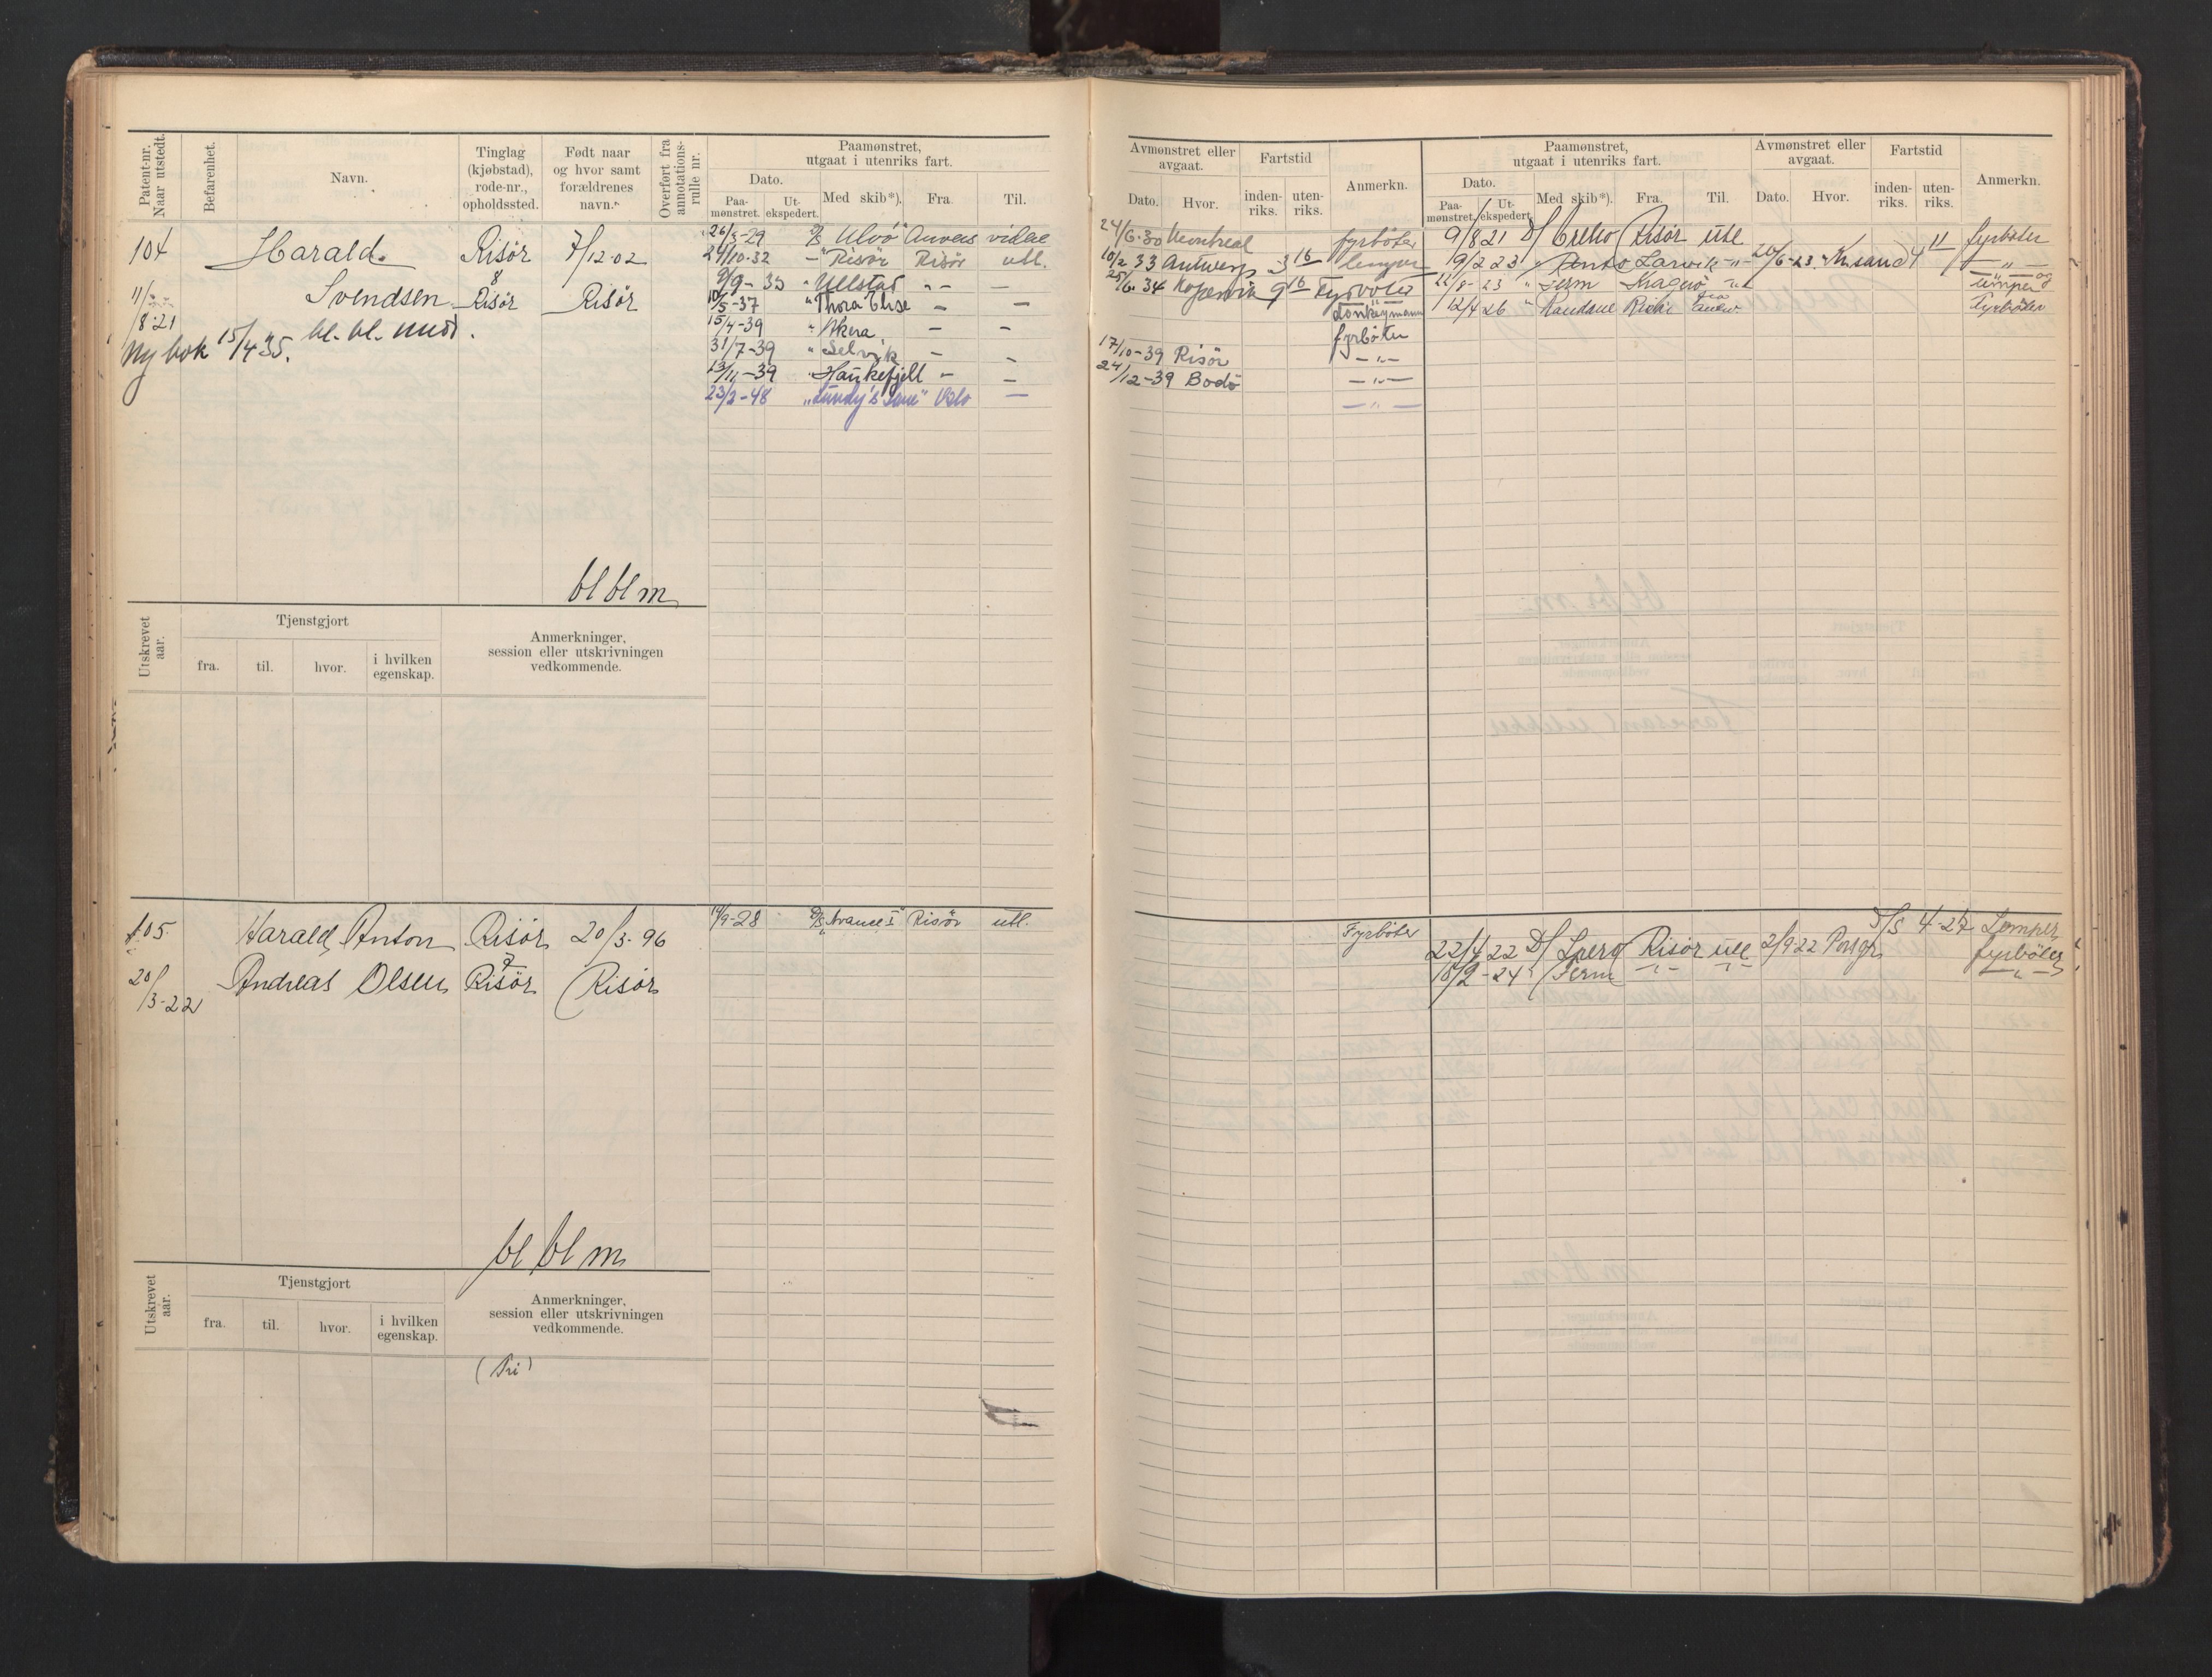 Patent-nr. Naar utstedt.
Befarenhet.
Navn.
Tinglag (kjøbstad), rode-nr., opholdssted.
Født naar og hvor samt forældrenes navn.
Overført fra annotations-rulle nr.
Paamønstret, utgaat i utenriks fart.
Dato.
Paa-mønstret.
Ut-ekspedert.
Med skib*).
Fra.
Til.
104 Harald Risör 7/12-02
8
11/8-21 Svendsen Risör Risör
Ny bok 15/4 35. bl. bl. mod.
26/3-29 D/S Ulvö Anvers videre
24/10-32 - " Risör Risör utl.
9/9-33 " Ullstad " - —
10/5-37 " Thora Elise — —
15/4-39 " Akera — —
31/7-39 " Selvik — —
13/11-39 " Haukefjell — —
23/2-48 " Oslo —
bl bl m
Utskrevet aar.
Tjenstgjort
fra. til. hvor. i hvilken egenskap.
Anmerkninger, session eller utskrivningen vedkommende.
105. Harald Anton Risör 20/3-96
20/3-22 Andreas Olsen Risör Risör
19/9-28 D/S Avance I Risör utl.
bl bl m
Utskrevet aar.
Tjenstgjort
fra. til. hvor. i hvilken egenskap.
Anmerkninger, session eller utskrivningen vedkommende.
Avmønstret eller avgaat.
Dato. Hvor.
Fartstid
inden-riks. uten-riks.
Anmerkn.
Paamønstret, utgaat i utenriks fart.
Dato.
Paa-mønstret. Ut-ekspedert.
Med skib*). Fra. Til.
Avmønstret eller avgaat.
Dato. Hvor.
Fartstid
inden-riks. uten-riks.
Anmerkn.
24/6-30 Montreal fyrböter
10/2 33 Antwerp 3 16 lemper
25/6. 34 9 16 Fyrböter
Donkeymann
fyrböter
17/10-39 Risör — " —
24/12-39 Bodö — " —
— " —
9/8 21 D/ Risör utl 11 fyrböter
19/2 23 " Larvik - " - 20/6-23. Kr.sand 4 — " —
22/8-23 " Jerm Kragerö utl lemper og
12/4 26 " Fyrböter
Fyrböter
22/4 22 D/ Risör utl 2/9-22 Porsgr D/S 4-27 Lemper
fyrböter
15/2-24 " Jerm - " - - " - — " —